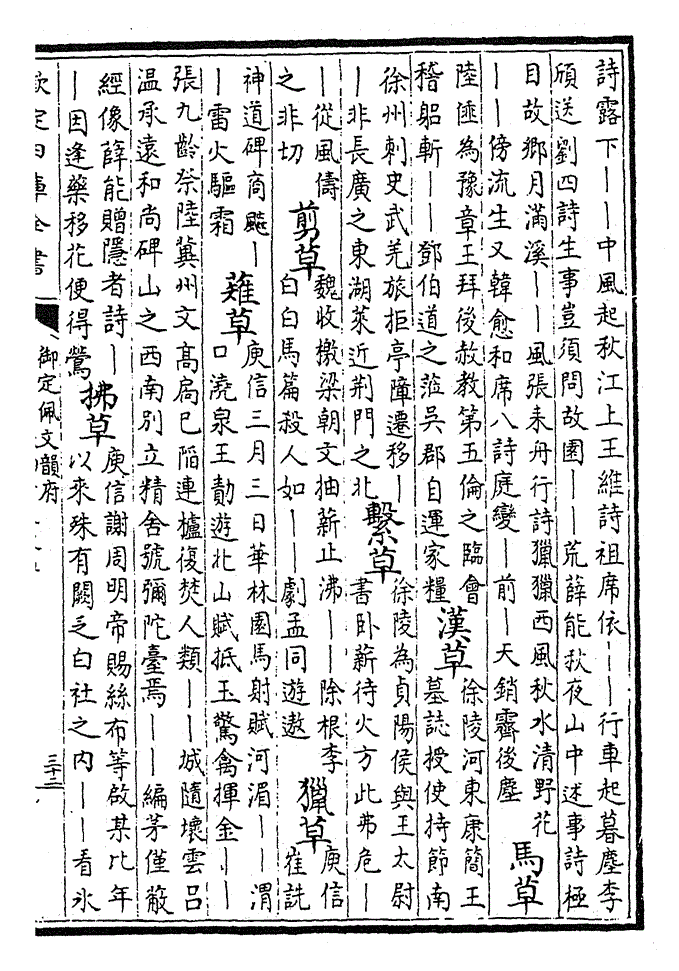 詩露下——中風起秋江上王維詩祖席依——行車起暮塵李
頎送劉四詩生事豈須問故園——荒薛能秋夜山中述事詩極
目故鄉月滿溪——風張耒舟行詩獵獵西風秋水清野花
——傍流生又韓愈和席八詩庭變—前—天銷霽後塵
馬草
陸倕為豫章王拜後赦教第五倫之臨會
稽躬斬——鄧伯道之蒞吳郡自運家糧
漢草
徐陵河東康簡王
墓誌授使持節南
徐州刺史武羌旅拒亭障遷移—
—非長廣之東湖萊近荆門之北
繫草
徐陵為貞陽侯與王太尉
書卧薪待火方此弗危—
—從風儔
之非切
剪草
魏收檄梁朝文抽薪止沸——除根李
白白馬篇殺人如——劇孟同遊遨
獵草
庾信
崔詵
神道碑商飈—
—雷火驅霜
薙草
庾信三月三日華林園馬射賦河湄——渭
口澆泉王勣遊北山賦抵玉驚禽揮金——
張九齡祭陸冀州文高扃已陷連櫨復焚人類——城隨壞雲呂
温承遠和尚碑山之西南別立精舍號彌陀臺焉——編茅僅蔽
經像薛能贈隱者詩—
—因逢藥移花便得鶯
拂草
庾信謝周明帝賜絲布等啟某比年
以來殊有闕乏白社之内——看氷
欽定四庫全書
御定佩文韻府
三十二